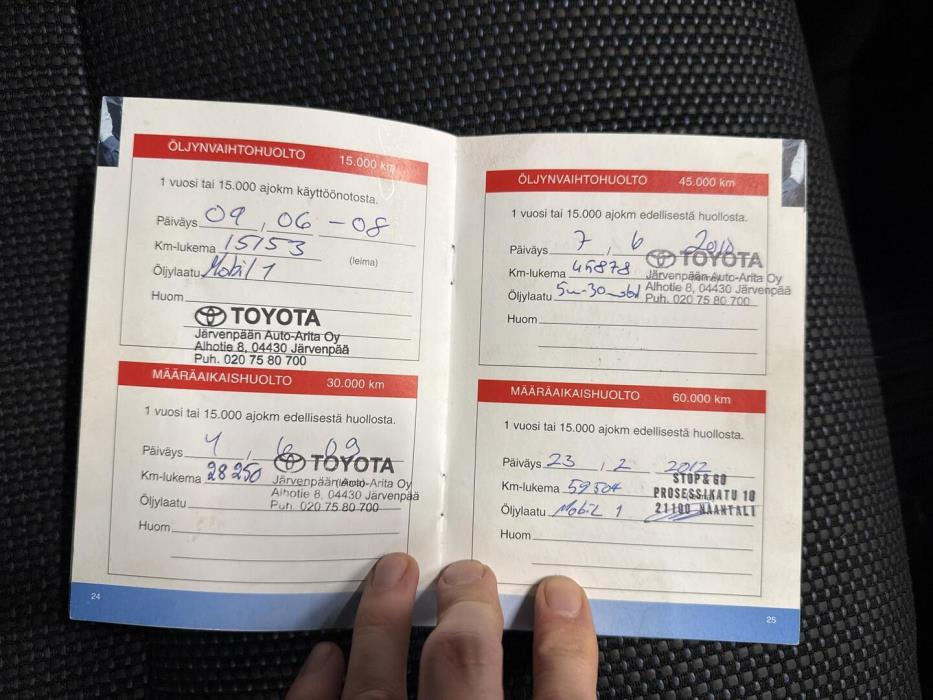 ÖLJYNVAIHTOHUOLTO 15.000 km
1 vuosi tai 15.000 ajokm käyttöönotosta.
Päiväys 09 , 06 - 08
Km-lukema 15153
(leima)
Öljylaatu Mobil 1
Huom
TOYOTA
Järvenpään Auto-Arita Oy
Alhotie 8, 04430 Järvenpää
Puh. 020 75 80 700
MÄÄRÄAIKAISHUOLTO 30.000 km
1 vuosi tai 15.000 ajokm edellisestä huollosta.
Päiväys , 6 09
TOYOTA
Km-lukema 28250
Järvenpään Auto-Arita Oy
Alhotie 8, 04430 Järvenpää
Öljylaatu
Puh. 020 75 80 700
Huom
24
ÖLJYNVAIHTOHUOLTO 45.000 km
1 vuosi tai 15.000 ajokm edellisestä huollosta.
Päiväys 7 , 6 2010
TOYOTA
Km-lukema 45878
Järvenpään Auto-Arita Oy
Alhotie 8, 04430 Järvenpää
Öljylaatu 5w-30
Puh. 020 75 80 700
Huom
MÄÄRÄAIKAISHUOLTO 60.000 km
1 vuosi tai 15.000 ajokm edellisestä huollosta.
Päiväys 23 , 2 2012
STOP & GO
Km-lukema 59504
PROSESSIKATU 10
Öljylaatu Mobil 1
21100 NAANTALI
Huom
25